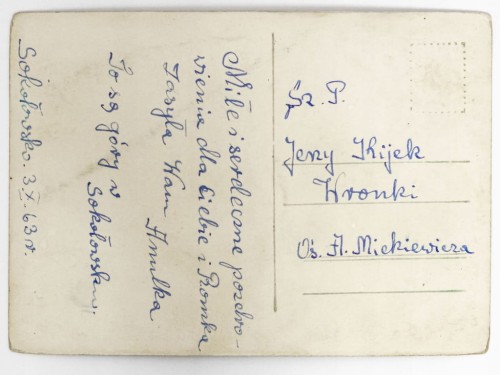 Miłe i serdeczne pozdro-
wienia dla Ciebie i Romka
Zasyła Wam Anulka
To są góry w
Sokołowsku.
Sokołowsko. 3.X.63 r.
Sz. P.
Jerzy Kijek
Wronki
Os. A. Mickiewicza